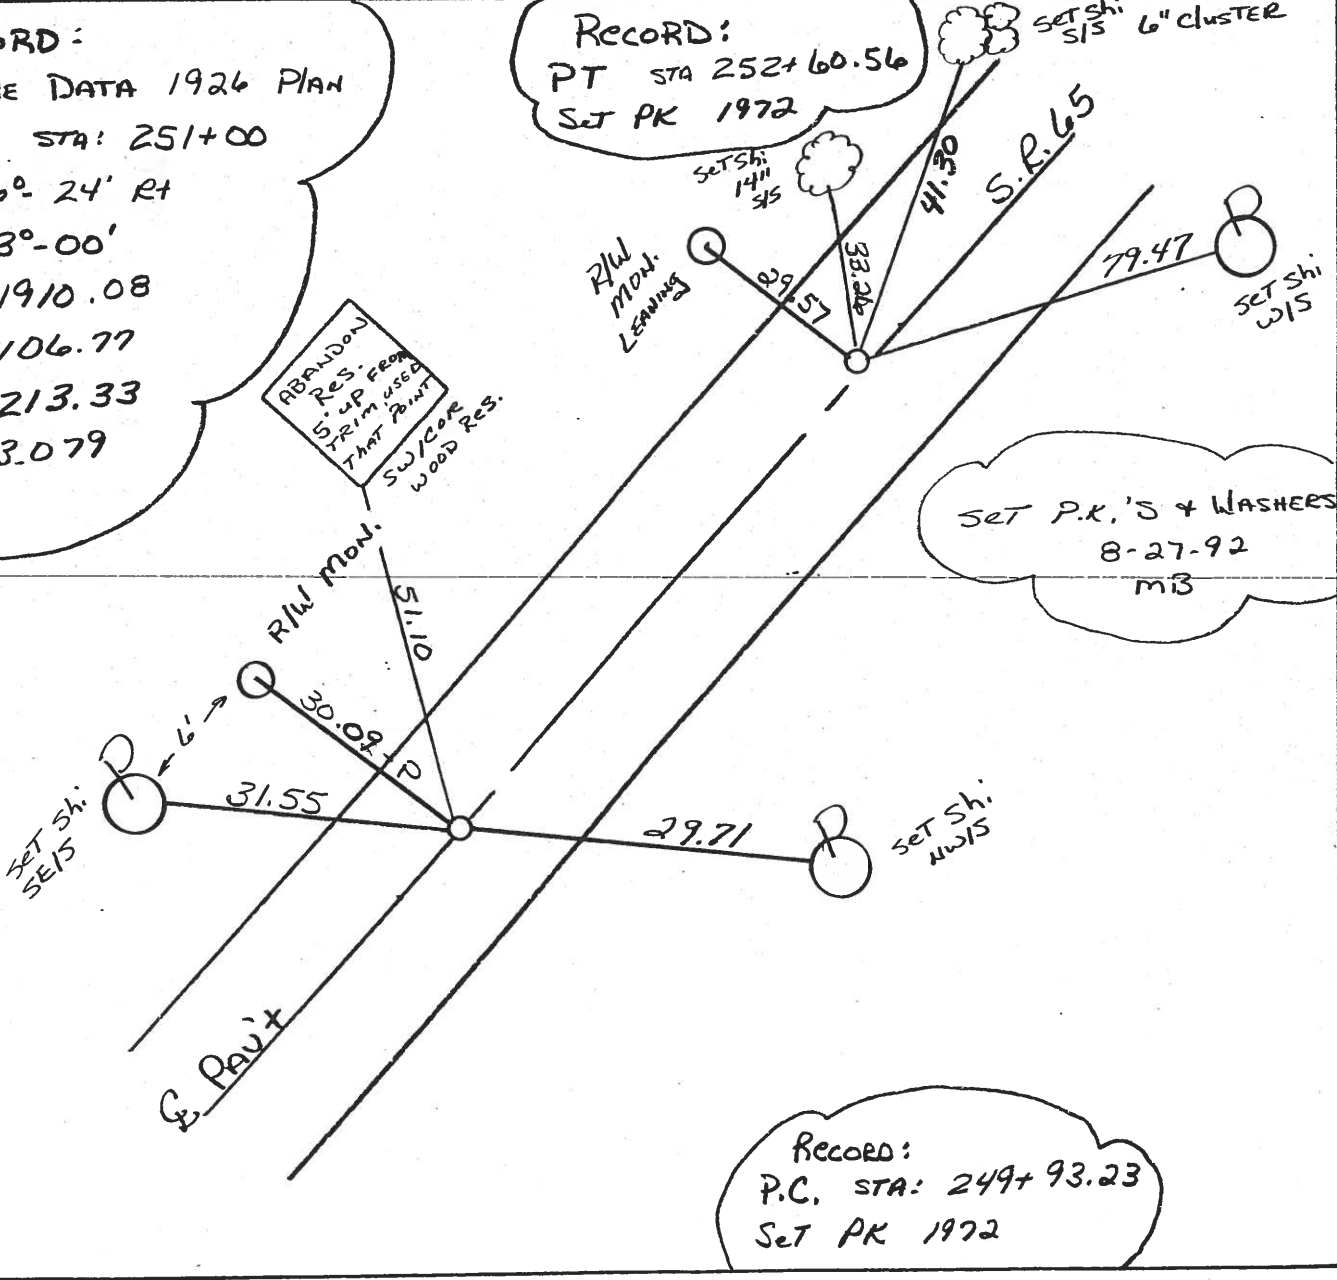 ORD:
E DATA 1926 PLAN
STA: 251+00
6°- 24' Rt
3°-00'
1910.08
106.77
213.33
3.079
RECORD:
PT STA 252+60.56
SET PK 1972
SET Shi
S/S 6" CLUSTER
SET Shi
14"
S/S
41.30
S.R. 65
33.26
R/W
MON.
LEANING
29.57
79.47
SET Shi
W/S
ABANDON
RES.
5' UP FROM
TRIM, USED
THAT POINT
SW/COR
WOOD RES.
SET P.K.'S & WASHERS
8-27-92
MB
R/W MON.
51.10
6'
30.09
31.55
SET Shi
SE/S
29.71
SET Shi
NW/S
℄ PAV'T
RECORD:
P.C. STA: 249+93.23
SET PK 1972